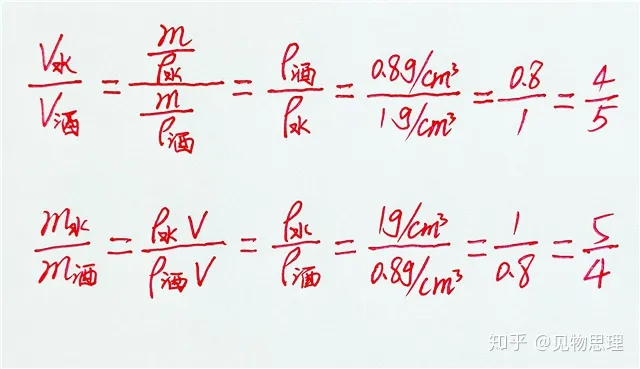 V水/V酒 = (m/ρ水)/(m/ρ酒) = ρ酒/ρ水 = 0.8g/cm³/1g/cm³ = 0.8/1 = 4/5
m水/m酒 = ρ水V/ρ酒V = ρ水/ρ酒 = 1g/cm³/0.8g/cm³ = 1/0.8 = 5/4
知乎 @见物思理